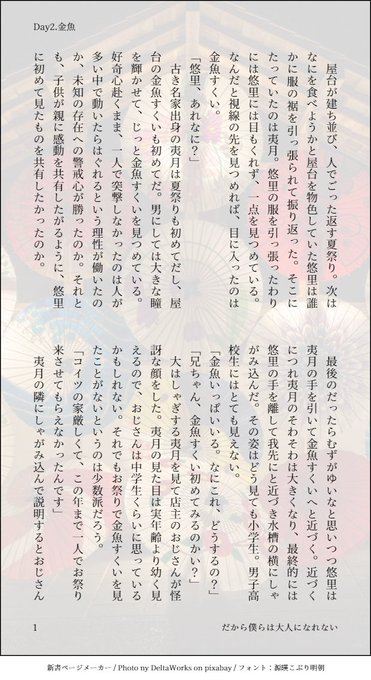 Day2.金魚
屋台が建ち並び、人でごった返す夏祭り。次は
なにを食べようかと屋台を物色していた悠里は誰
かに服の裾を引っ張られて振り返った。そこに
たっていたのは夷月。悠里の服を引っ張ったわり
には悠里には目もくれず、一点を見つめている。
なんだと視線の先を見つめれば、目に入ったのは
金魚すくい。
「悠里、あれなに?」
古き名家出身の夷月は夏祭りも初めてだし、屋
台の金魚すくいも初めてだ。男にしては大きな瞳
を輝かせて、じっと金魚すくいを見つめている。
好奇心赴くまま、一人で突撃しなかったのは人が
多い中で動いたらはぐれるという理性が働いたの
か、未知の存在への警戒心が勝ったのか。それと
も、子供が親に感動を共有したがるように、悠里
に初めて見たものを共有したかったのか。
最後のだったらむずがゆいなと思いつつ悠里は
夷月の手を引いて金魚すくいへと近づく。近づく
につれ夷月のそわそわは大きくなり、最終的には
悠里の手を離して我先にと近づき水槽の横にしゃ
がみ込んだ。その姿はどう見ても小学生。男子高
校生にはとても見えない。
「金魚いっぱいいる。なにこれ、どうするの?」
「兄ちゃん、金魚すくい初めてみるのかい?」
大はしゃぎする夷月を見て店主のおじさんが怪
訝な顔をした。夷月の見た目は実年齢より幼く見
えるので、おじさんは中学生くらいに思っている
かもしれない。それでもお祭りで金魚すくいを見
たことがないというのは少数派だろう。
「コイツの家厳しくて、この年まで一人でお祭り
来させてもらえなかったんです」
夷月の隣にしゃがみ込んで説明するとおじさん
1
だから僕らは大人になれない
新書ページメーカー / Photo ny DeltaWorks on pixabay / フォント:源暎こぶり明朝